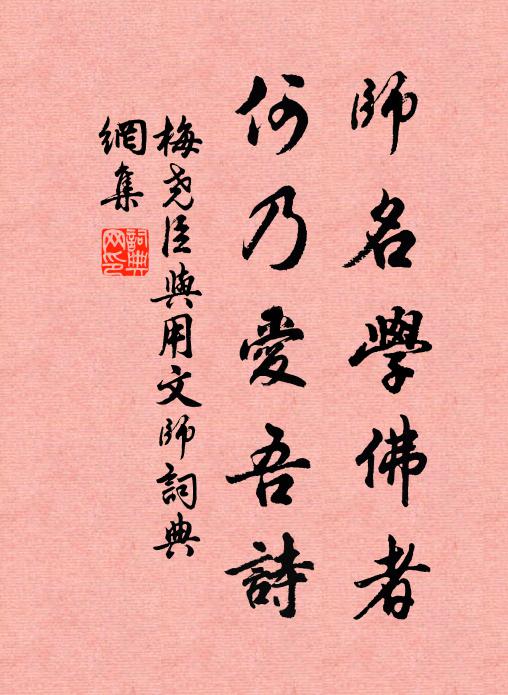 師名學佛者
何乃愛吾詩
梅堯臣與用文師詞典
網集
詞典網印